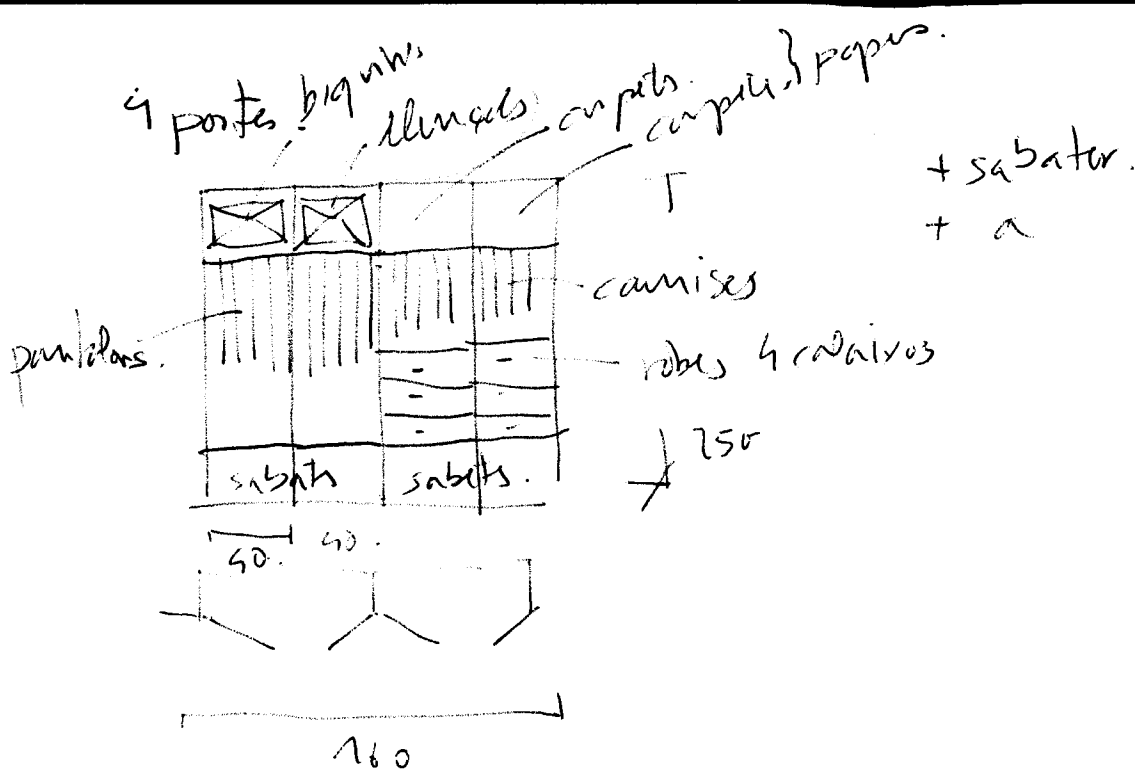 4 portes
llençols
carpets.
carpets. } papers.
+ sabater.
+ a
camises
pantalons.
robes 4 calaixos
250
sabats sabets.
40. 40.
160